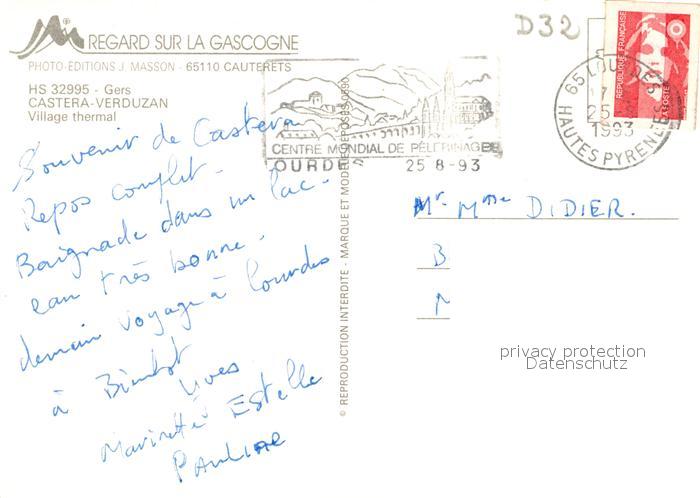 JM REGARD SUR LA GASCOGNE
PHOTO-EDITIONS J. MASSON - 65110 CAUTERETS
HS 32995 - Gers
CASTERA-VERDUZAN
Village thermal
Souvenir de Castera
Repos complet.
Baignade dans un lac.
eau très bonne.
demain voyage à Lourdes
à Bientôt
Yves
Marinette Estelle
Pauline
© REPRODUCTION INTERDITE - MARQUE ET MODELE DEPOSES
CENTRE MONDIAL DE PÈLERINAGES
LOURDES 25-8-93
D32
65 LOURDES
25
1993
HAUTES PYRENEES
REPUBLIQUE FRANÇAISE
LA POSTE
Mr Mme DIDIER.
B
privacy protection
Datenschutz